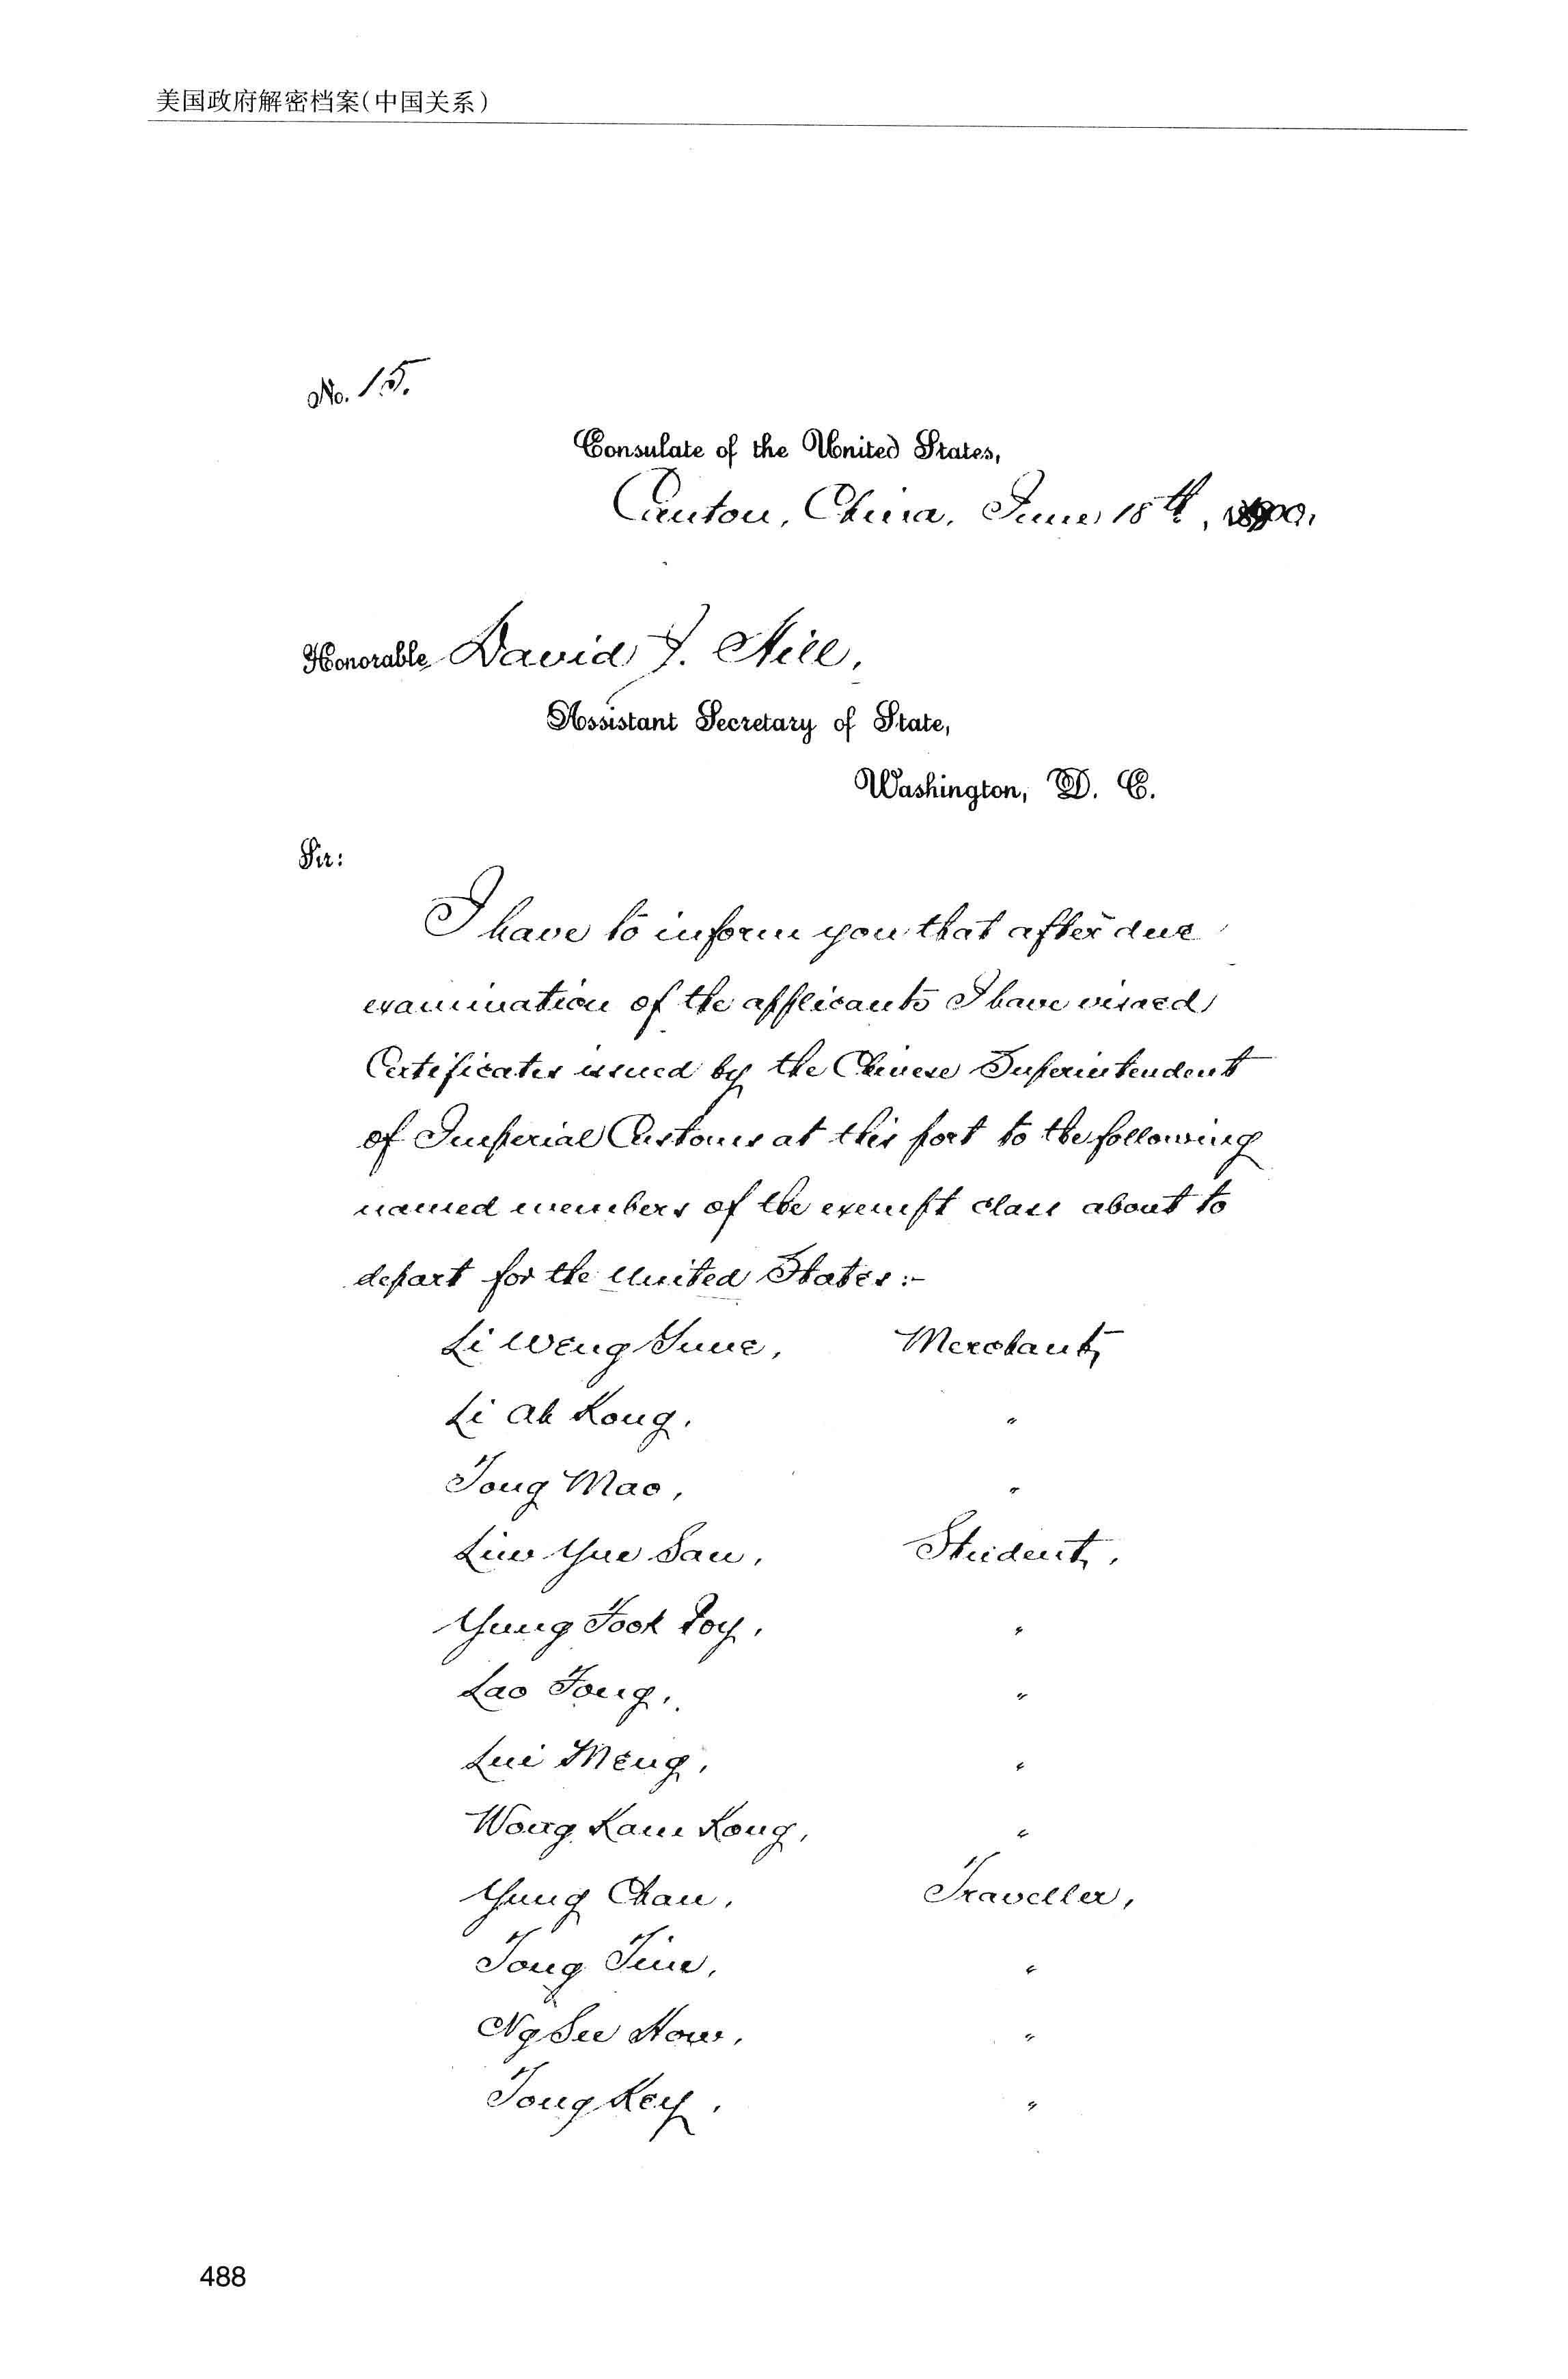 美国政府解密档案(中国关系)
No. 15.
Consulate of the United States,
Canton, China, June 18th, 1900.
Honorable David J. Hill,
Assistant Secretary of State,
Washington, D. C.
Sir:
I have to inform you that after due
examination of the applicants I have visaed
Certificates issued by the Chinese Superintendent
of Imperial Customs at this port to the following
named members of the exempt class about to
depart for the United States :-
Li Weng June, Merchant,
Li Ah Kong. "
Tong Mao, "
Lim Yue San, Student,
Yung Fook Poy, "
Lao Tong, "
Lui Meng, "
Wong Kam Kong, "
Yung Chan, Traveller,
Tong Tim, "
Ng See How, "
Tong Key, "
488